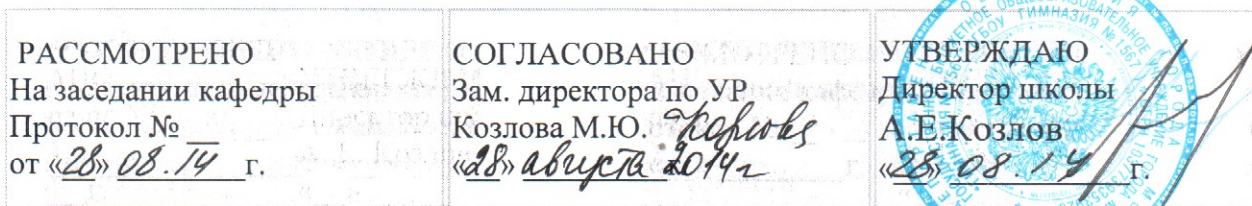 РАССМОТРЕНО
На заседании кафедры
Протокол № __
от «28» 08.14 г.
СОГЛАСОВАНО
Зам. директора по УР
Козлова М.Ю.
«28» августа 2014 г
УТВЕРЖДАЮ
Директор школы
А.Е.Козлов
«28» 08.14 г.
ГИМНАЗИЯ № 1567